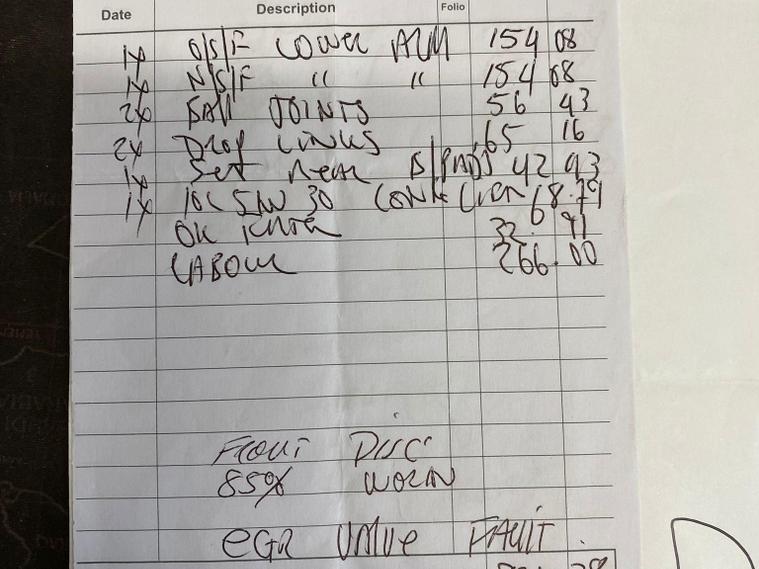 Date Description Folio
1x O/S/F LOWER ARM 154 08
1x N/S/F " " 154 08
2x BALL JOINTS 56 43
2x Drop LINKS 65 16
1x Set Rear B/PADS 42 93
1x 10L 5W 30 68.79
OIL 32.91
LABOUR 266.00
FRONT DISC
85% WORN
EGR VALVE FAULT.